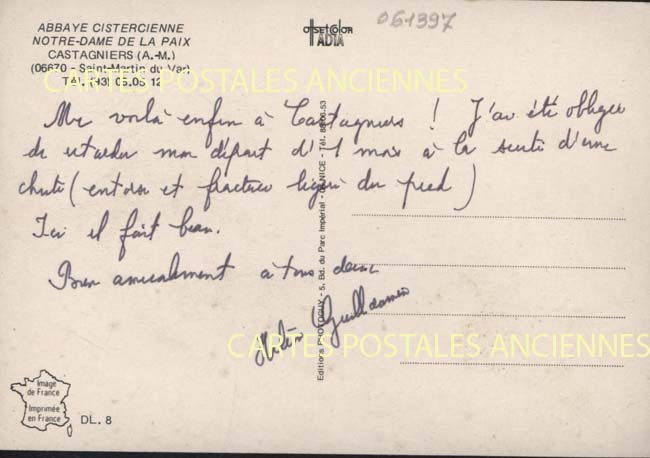 ABBAYE CISTERCIENNE
NOTRE-DAME DE LA PAIX
CASTAGNIERS (A.-M.)
(06670 - Saint-Martin du Var)
Tél. (93) 08.05.12
OFFSETCOLOR
IADIA
061397
CARTES POSTALES ANCIENNES
Me voilà enfin à Castagniers ! J'ai été obligée
de retarder mon départ d'1 mois à la suite d'une
chute (entorse et fracture légère du pied)
Ici il fait beau.
Bien amicalement à tous deux
Guillaumin
Editions PHOTOGUY - 5, Bd. du Parc Impérial - 06-NICE - Tél. 88.06.53
CARTES POSTALES ANCIENNES
Image
de France
Imprimée
en France
DL. 8